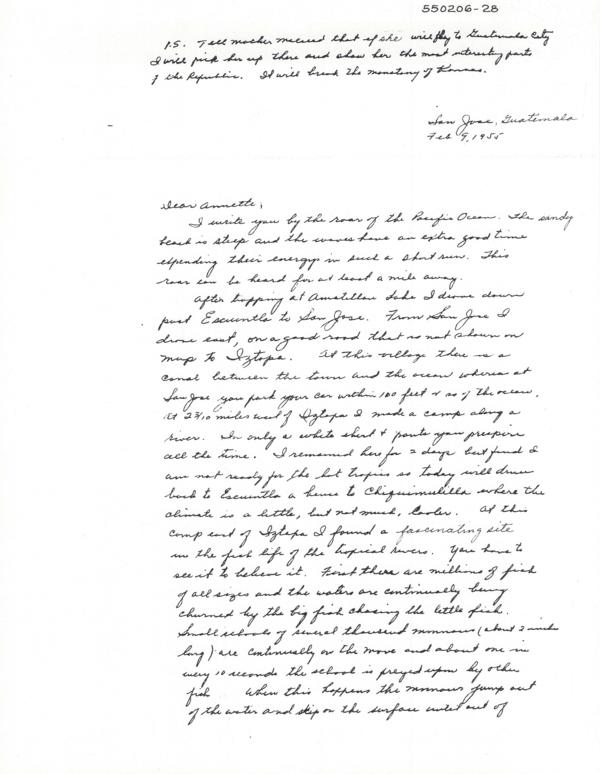 550206-28
P.S. Tell mother that if she will fly to Guatemala City
I will pick her up there and show her the most interesting parts
of the Republic. It will break the monotony of Kansas.
San Jose, Guatemala
Feb 9, 1955
Dear Annette,
I write you by the roar of the Pacific Ocean. The sandy
beach is steep and the waves have an extra good time
expending their energy in such a short run. This
roar can be heard for at least a mile away.
After stopping at Amatitlan Lake I drove down
past Escuintla to San Jose. From San Jose I
drove east, on a good road that is not shown on
map to Iztapa. At this village there is a
canal between the town and the ocean whereas at
San Jose you park your car within 100 feet or so of the ocean.
At 2 3/10 miles east of Iztapa I made a camp along a
river. In only a white shirt & pants you perspire
all the time. I remained here for 2 days but find I
am not ready for the hot tropics so today will drive
back to Escuintla & hence to Chiquimulilla where the
climate is a little, but not much, cooler. At this
camp east of Iztapa I found a fascinating site
in the fish life of the tropical rivers. You have to
see it to believe it. First there are millions of fish
of all sizes and the waters are continually being
churned by the big fish chasing the little fish.
Small schools of several thousand minnows (about 2 inches
long) are continually on the move and about one in
every 10 seconds the school is preyed upon by other
fish. When this happens the minnows jump out
of the water and skip on the surface out of